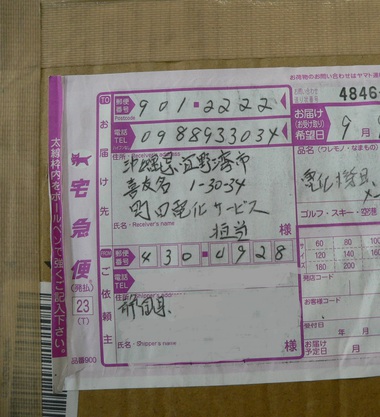 お荷物のお問い合わせはヤマト運
TO お届け先
郵便番号 901-2222
Postcode
4846-
電話 TEL 0988933034
お届け(お受け取り)希望日 9月
住所・Receiver's address
沖縄県宜野湾市
喜友名 1-30-34
町田電化サービス
担当 様
氏名・Receiver's name
品名(ワレモノ・なまもの)
電化機具
ゴルフ・スキー・空港
FROM ご依頼主
郵便番号 430-0928
電話 TEL
住所・Shipper's address
静岡県
氏名・Shipper's name
様
サイズ
60 80 100
120 140
180 200
発店コード
お客様コード
受付日
年 月
お届け予定日 月
太線枠内をボールペンで強くご記入下さい。
宅急便
(発払)
23
(T)
品番900